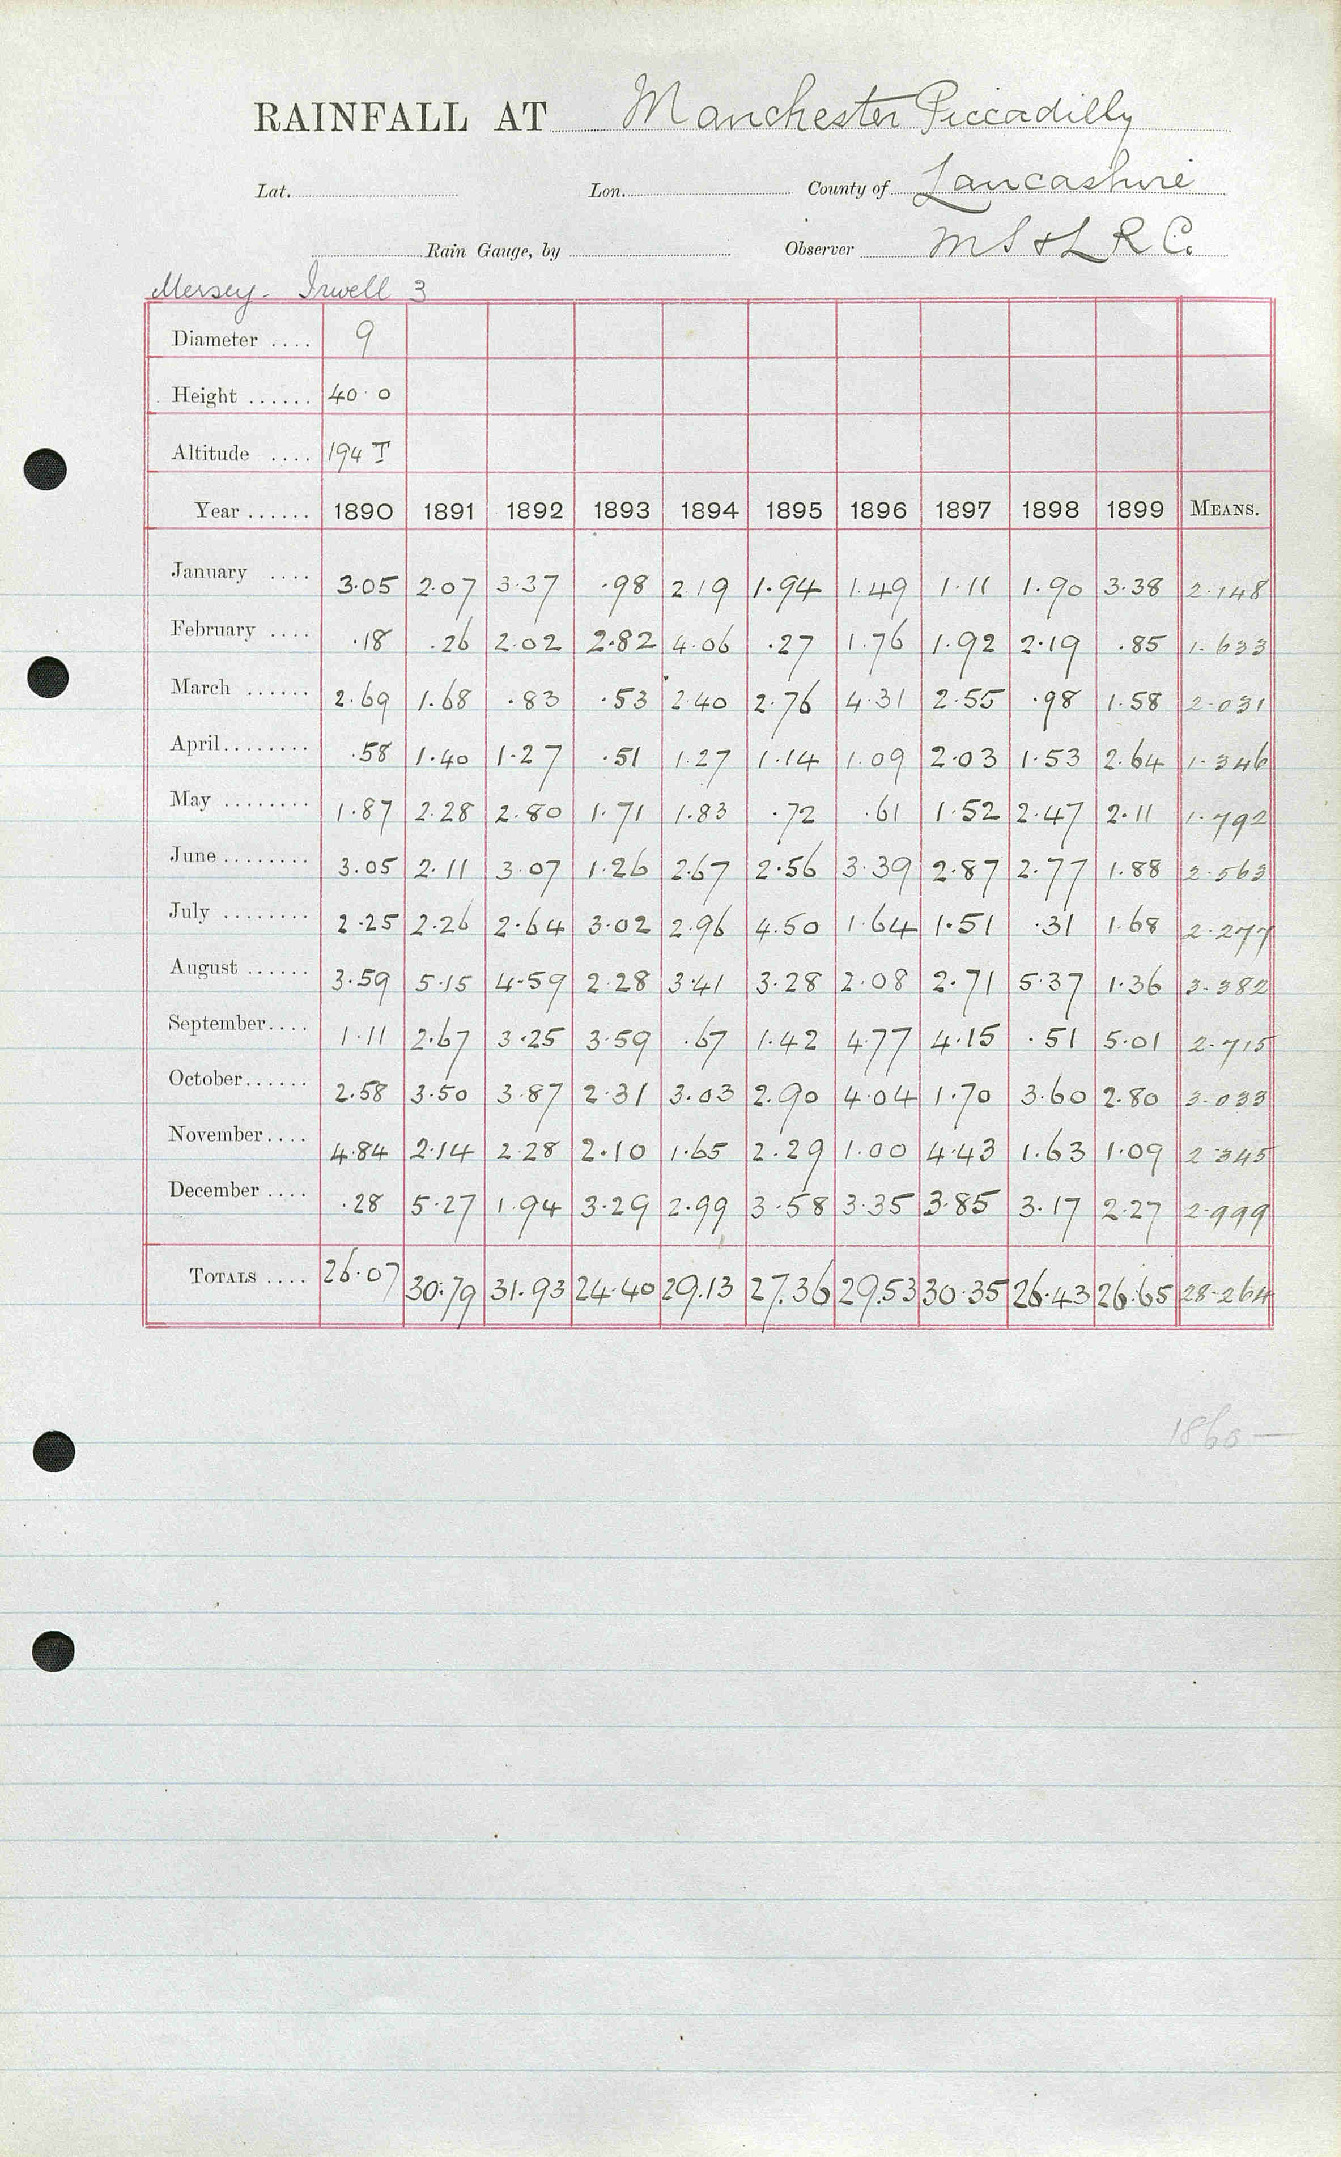 RAINFALL AT Manchester Piccadilly
Lat. Lon. County of Lancashire
Rain Gauge, by Observer M S & L R Co.
Mersey - Irwell 3
Diameter .... 9
Height ...... 40·0
Altitude .... 194 T
Year ...... 1890 1891 1892 1893 1894 1895 1896 1897 1898 1899 MEANS.
January .... 3.05 2.07 3.37 .98 2.19 1.94 1.49 1.11 1.90 3.38 2.148
February .... .18 .26 2.02 2.82 4.06 .27 1.76 1.92 2.19 .85 1.633
March ...... 2.69 1.68 .83 .53 2.40 2.76 4.31 2.55 .98 1.58 2.031
April........ .58 1.40 1.27 .51 1.27 1.14 1.09 2.03 1.53 2.64 1.346
May ........ 1.87 2.28 2.80 1.71 1.83 .72 .61 1.52 2.47 2.11 1.792
June ........ 3.05 2.11 3.07 1.26 2.67 2.56 3.39 2.87 2.77 1.88 2.563
July ........ 2.25 2.26 2.64 3.02 2.96 4.50 1.64 1.51 .31 1.68 2.277
August ...... 3.59 5.15 4.59 2.28 3.41 3.28 2.08 2.71 5.37 1.36 3.382
September.... 1.11 2.67 3.25 3.59 .67 1.42 4.77 4.15 .51 5.01 2.715
October...... 2.58 3.50 3.87 2.31 3.03 2.90 4.04 1.70 3.60 2.80 3.033
November.... 4.84 2.14 2.28 2.10 1.65 2.29 1.00 4.43 1.63 1.09 2.345
December .... .28 5.27 1.94 3.29 2.99 3.58 3.35 3.85 3.17 2.27 2.999
TOTALS .... 26.07 30.79 31.93 24.40 29.13 27.36 29.53 30.35 26.43 26.65 28.264
1860—